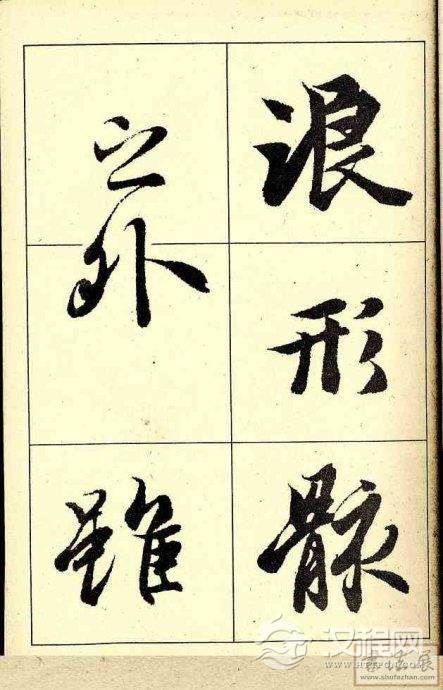 浪形骸
之外雖
汉程网
www.shufazhan.com